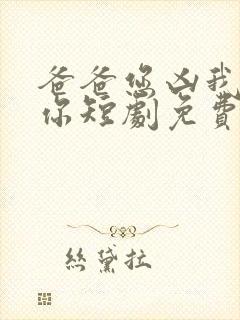 爸爸您凶我
你短劇免費
絲黛拉